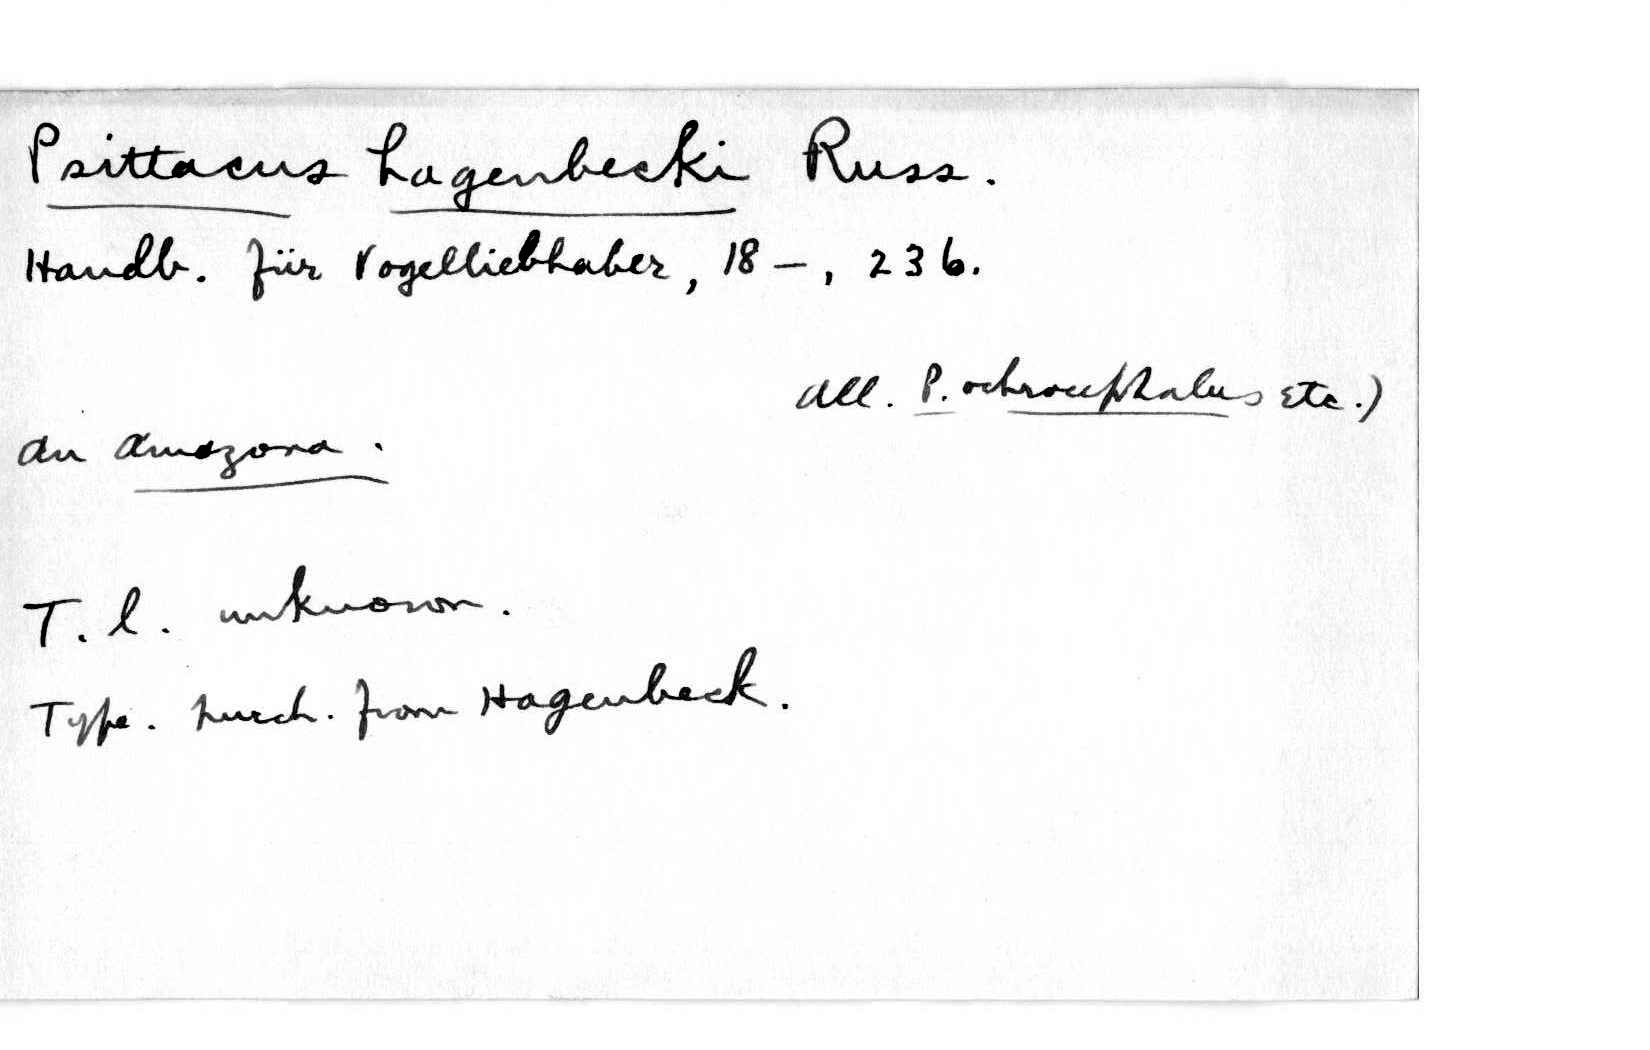 Psittacus hagenbecki Russ.
Handb. für Vogelliebhaber, 18-, 236.
all. P. ochrocephalus etc.)
an Amazona.
T. l. unknown.
Type. purch. from Hagenbeck.